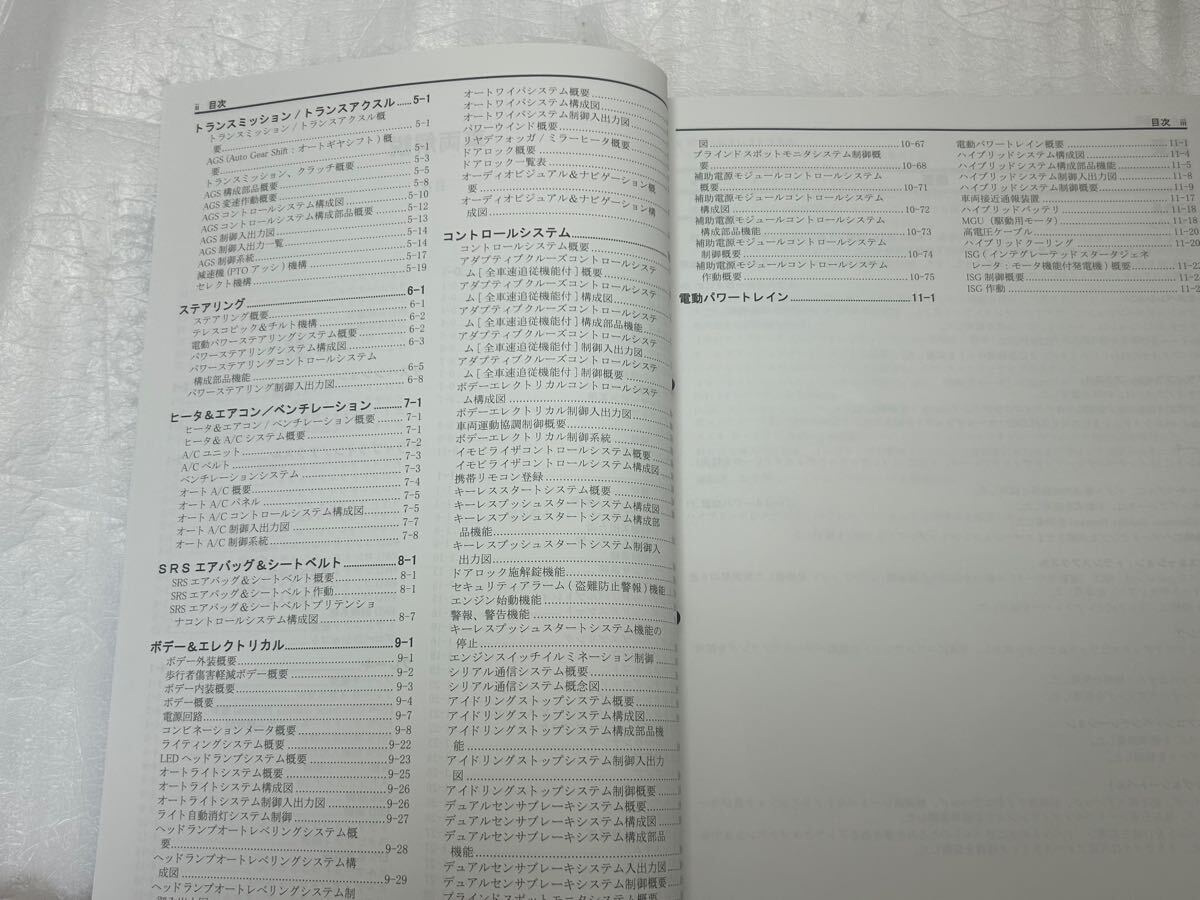 ii 目次
トランスミッション / トランスアクスル ......5-1
トランスミッション / トランスアクスル概
要 ...... 5-1
AGS (Auto Gear Shift : オートギヤシフト ) 概
要 ...... 5-1
トランスミッション、クラッチ概要 ...... 5-3
AGS 構成部品概要 ...... 5-5
AGS 変速作動概要 ...... 5-8
AGS コントロールシステム構成図 ...... 5-10
AGS コントロールシステム構成部品概要 ...... 5-12
AGS 制御入出力図 ...... 5-13
AGS 制御入出力一覧 ...... 5-14
AGS 制御系統 ...... 5-14
減速機 (PTO アッシ ) 機構 ...... 5-17
セレクト機構 ...... 5-19
ステアリング ...... 6-1
ステアリング概要 ...... 6-1
テレスコピック＆チルト機構 ...... 6-2
電動パワーステアリングシステム概要 ...... 6-2
パワーステアリングシステム構成図 ...... 6-3
パワーステアリングコントロールシステム
構成部品機能 ...... 6-5
パワーステアリング制御入出力図 ...... 6-8
ヒータ＆エアコン／ベンチレーション ...... 7-1
ヒータ＆エアコン / ベンチレーション概要 ...... 7-1
ヒータ＆ A/C システム概要 ...... 7-1
A/C ユニット ...... 7-2
A/C ベルト ...... 7-3
ベンチレーションシステム ...... 7-3
オート A/C 概要 ...... 7-4
オート A/C パネル ...... 7-5
オート A/C コントロールシステム構成図 ...... 7-5
オート A/C 制御入出力図 ...... 7-7
オート A/C 制御系統 ...... 7-8
ＳＲＳ エアバッグ＆シートベルト ...... 8-1
SRS エアバッグ＆シートベルト概要 ...... 8-1
SRS エアバッグ＆シートベルト作動 ...... 8-1
SRS エアバッグ＆シートベルトプリテンショ
ナコントロールシステム構成図 ...... 8-7
ボデー＆エレクトリカル ...... 9-1
ボデー外装概要 ...... 9-1
歩行者傷害軽減ボデー概要 ...... 9-2
ボデー内装概要 ...... 9-3
ボデー概要 ...... 9-4
電源回路 ...... 9-7
コンビネーションメータ概要 ...... 9-8
ライティングシステム概要 ...... 9-22
LED ヘッドランプシステム概要 ...... 9-23
オートライトシステム概要 ...... 9-25
オートライトシステム構成図 ...... 9-26
オートライトシステム制御入出力図 ...... 9-26
ライト自動消灯システム制御 ...... 9-27
ヘッドランプオートレベリングシステム概
要 ...... 9-28
ヘッドランプオートレベリングシステム構
成図 ...... 9-29
ヘッドランプオートレベリングシステム制
オートワイパシステム概要
オートワイパシステム構成図
オートワイパシステム制御入出力図
パワーウインド概要
リヤデフォッガ / ミラーヒータ概要
ドアロック概要
ドアロック一覧表
オーディオビジュアル＆ナビゲーション概
要
オーディオビジュアル＆ナビゲーション構
成図
コントロールシステム
コントロールシステム概要
アダプティブクルーズコントロールシステ
ム [ 全車速追従機能付 ] 概要
アダプティブクルーズコントロールシステ
ム [ 全車速追従機能付 ] 構成図
アダプティブクルーズコントロールシステ
ム [ 全車速追従機能付 ] 構成部品機能
アダプティブクルーズコントロールシステ
ム [ 全車速追従機能付 ] 制御入出力図
アダプティブクルーズコントロールシステ
ム [ 全車速追従機能付 ] 制御概要
ボデーエレクトリカルコントロールシステ
ム構成図
ボデーエレクトリカル制御入出力図
車両運動協調制御概要
ボデーエレクトリカル制御系統
イモビライザコントロールシステム概要
イモビライザコントロールシステム構成図
携帯リモコン登録
キーレススタートシステム概要
キーレスプッシュスタートシステム構成図
キーレスプッシュスタートシステム構成部
品機能
キーレスプッシュスタートシステム制御入
出力図
ドアロック施解錠機能
セキュリティアラーム ( 盗難防止警報 ) 機能
エンジン始動機能
警報、警告機能
キーレスプッシュスタートシステム機能の
停止
エンジンスイッチイルミネーション制御
シリアル通信システム概要
シリアル通信システム概念図
アイドリングストップシステム概要
アイドリングストップシステム構成図
アイドリングストップシステム構成部品機
能
アイドリングストップシステム制御入出力
図
アイドリングストップシステム制御概要
デュアルセンサブレーキシステム概要
デュアルセンサブレーキシステム構成図
デュアルセンサブレーキシステム構成部品
機能
デュアルセンサブレーキシステム入出力図
デュアルセンサブレーキシステム制御概要
ブラインドスポットモニタシステム概要
目次 iii
図 ...... 10-67
ブラインドスポットモニタシステム制御概
要 ...... 10-68
補助電源モジュールコントロールシステム
概要 ...... 10-71
補助電源モジュールコントロールシステム
構成図 ...... 10-72
補助電源モジュールコントロールシステム
構成部品機能 ...... 10-73
補助電源モジュールコントロールシステム
制御概要 ...... 10-74
補助電源モジュールコントロールシステム
作動概要 ...... 10-75
電動パワートレイン ...... 11-1
電動パワートレイン概要 ...... 11-1
ハイブリッドシステム構成図 ...... 11-4
ハイブリッドシステム構成部品機能 ...... 11-5
ハイブリッドシステム制御入出力図 ...... 11-8
ハイブリッドシステム制御概要 ...... 11-9
車両接近通報装置 ...... 11-17
ハイブリッドバッテリ ...... 11-18
MGU（駆動用モータ） ...... 11-18
高電圧ケーブル ...... 11-20
ハイブリッドクーリング ...... 11-20
ISG（インテグレーテッドスタータジェネ
レータ : モータ機能付発電機）概要 ...... 11-22
ISG 制御概要 ...... 11-2
ISG 作動 ...... 11-2